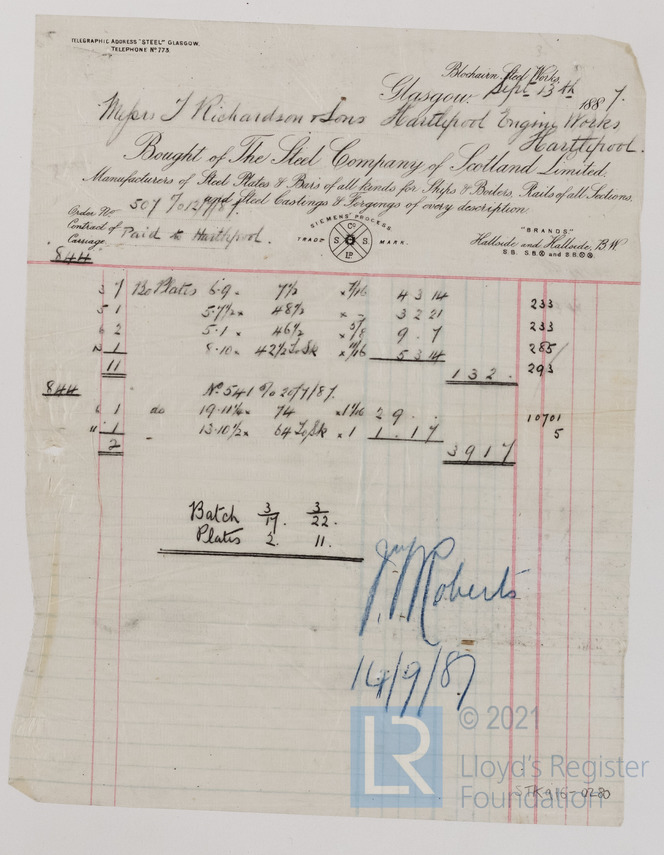 TELEGRAPHIC ADDRESS "STEEL" GLASGOW.
TELEPHONE No 773.
Blochairn Steel Works,
Glasgow. Sept 13th 1887.
Messrs T Richardson & Sons Hartlepool Engine Works
Hartlepool.
Bought of The Steel Company of Scotland Limited.
Manufacturers of Steel Plates & Bars of all kinds for Ships & Boilers, Rails of all Sections,
and Steel Castings & Forgings of every description.
Order No 507
Contract of
Carriage Paid to Hartlepool.
SIEMENS' PROCESS.
TRADE MARK.
Co S S LD
"BRANDS"
Hallside and Hallside, B.W
S.B. S.B.⊗ and S.B.⊗⊗
844
3 7 Bo Plates 6.9 × 7½ × 7/16 4 3 14 233
5 1 5.7½ × 48½ × 3 2 21 233
6 2 5.1 × 46½ × 5/8 9 . 7 285
1 8.10 × 42½ × 11/16 5 3 14 293
11 132 .
844 No 541 % 20/7/87.
6 1 do 19.11¼ × 74 × 1 1/16 29 . . 10701
" 1 13.10½ × 64 × 1 1 . 17 5
2 39 17
Batch 3/17. 3/22.
Plates 2. 11.
Roberts
14/9/87
LR
© 2021
Lloyd's Register
Foundation
STK916-0280